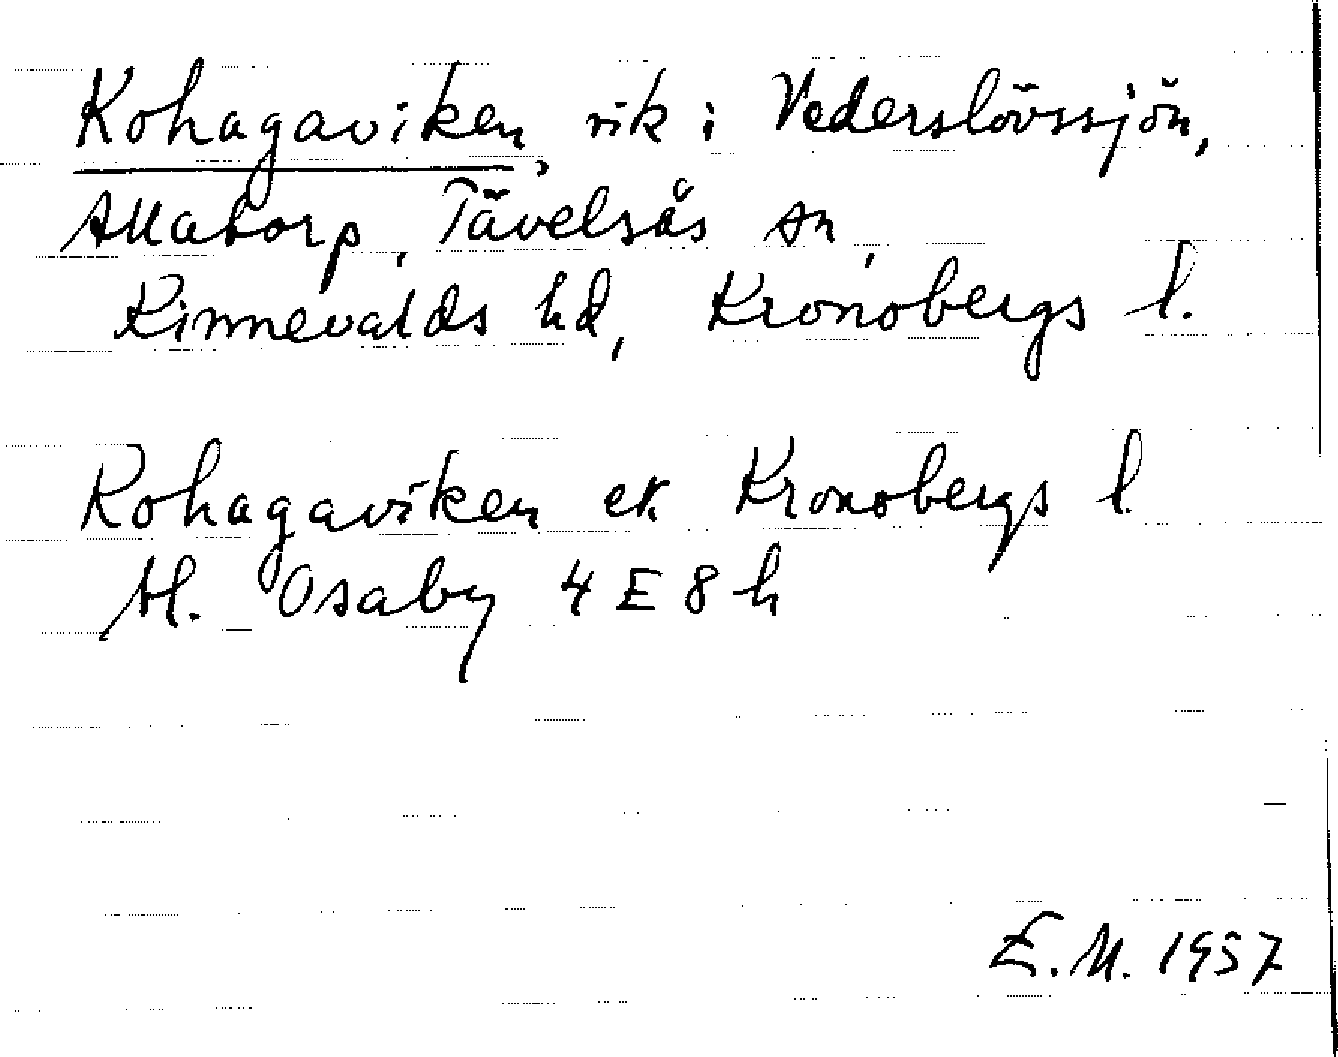 Kohagaviken, vik i Vederslövssjön,
Allatorp, Tävelsås sn,
Kinnevalds hd, Kronobergs l.
Kohagaviken ek Kronobergs l.
Bl. Osaby 4 E 8 h
E.M. 1957